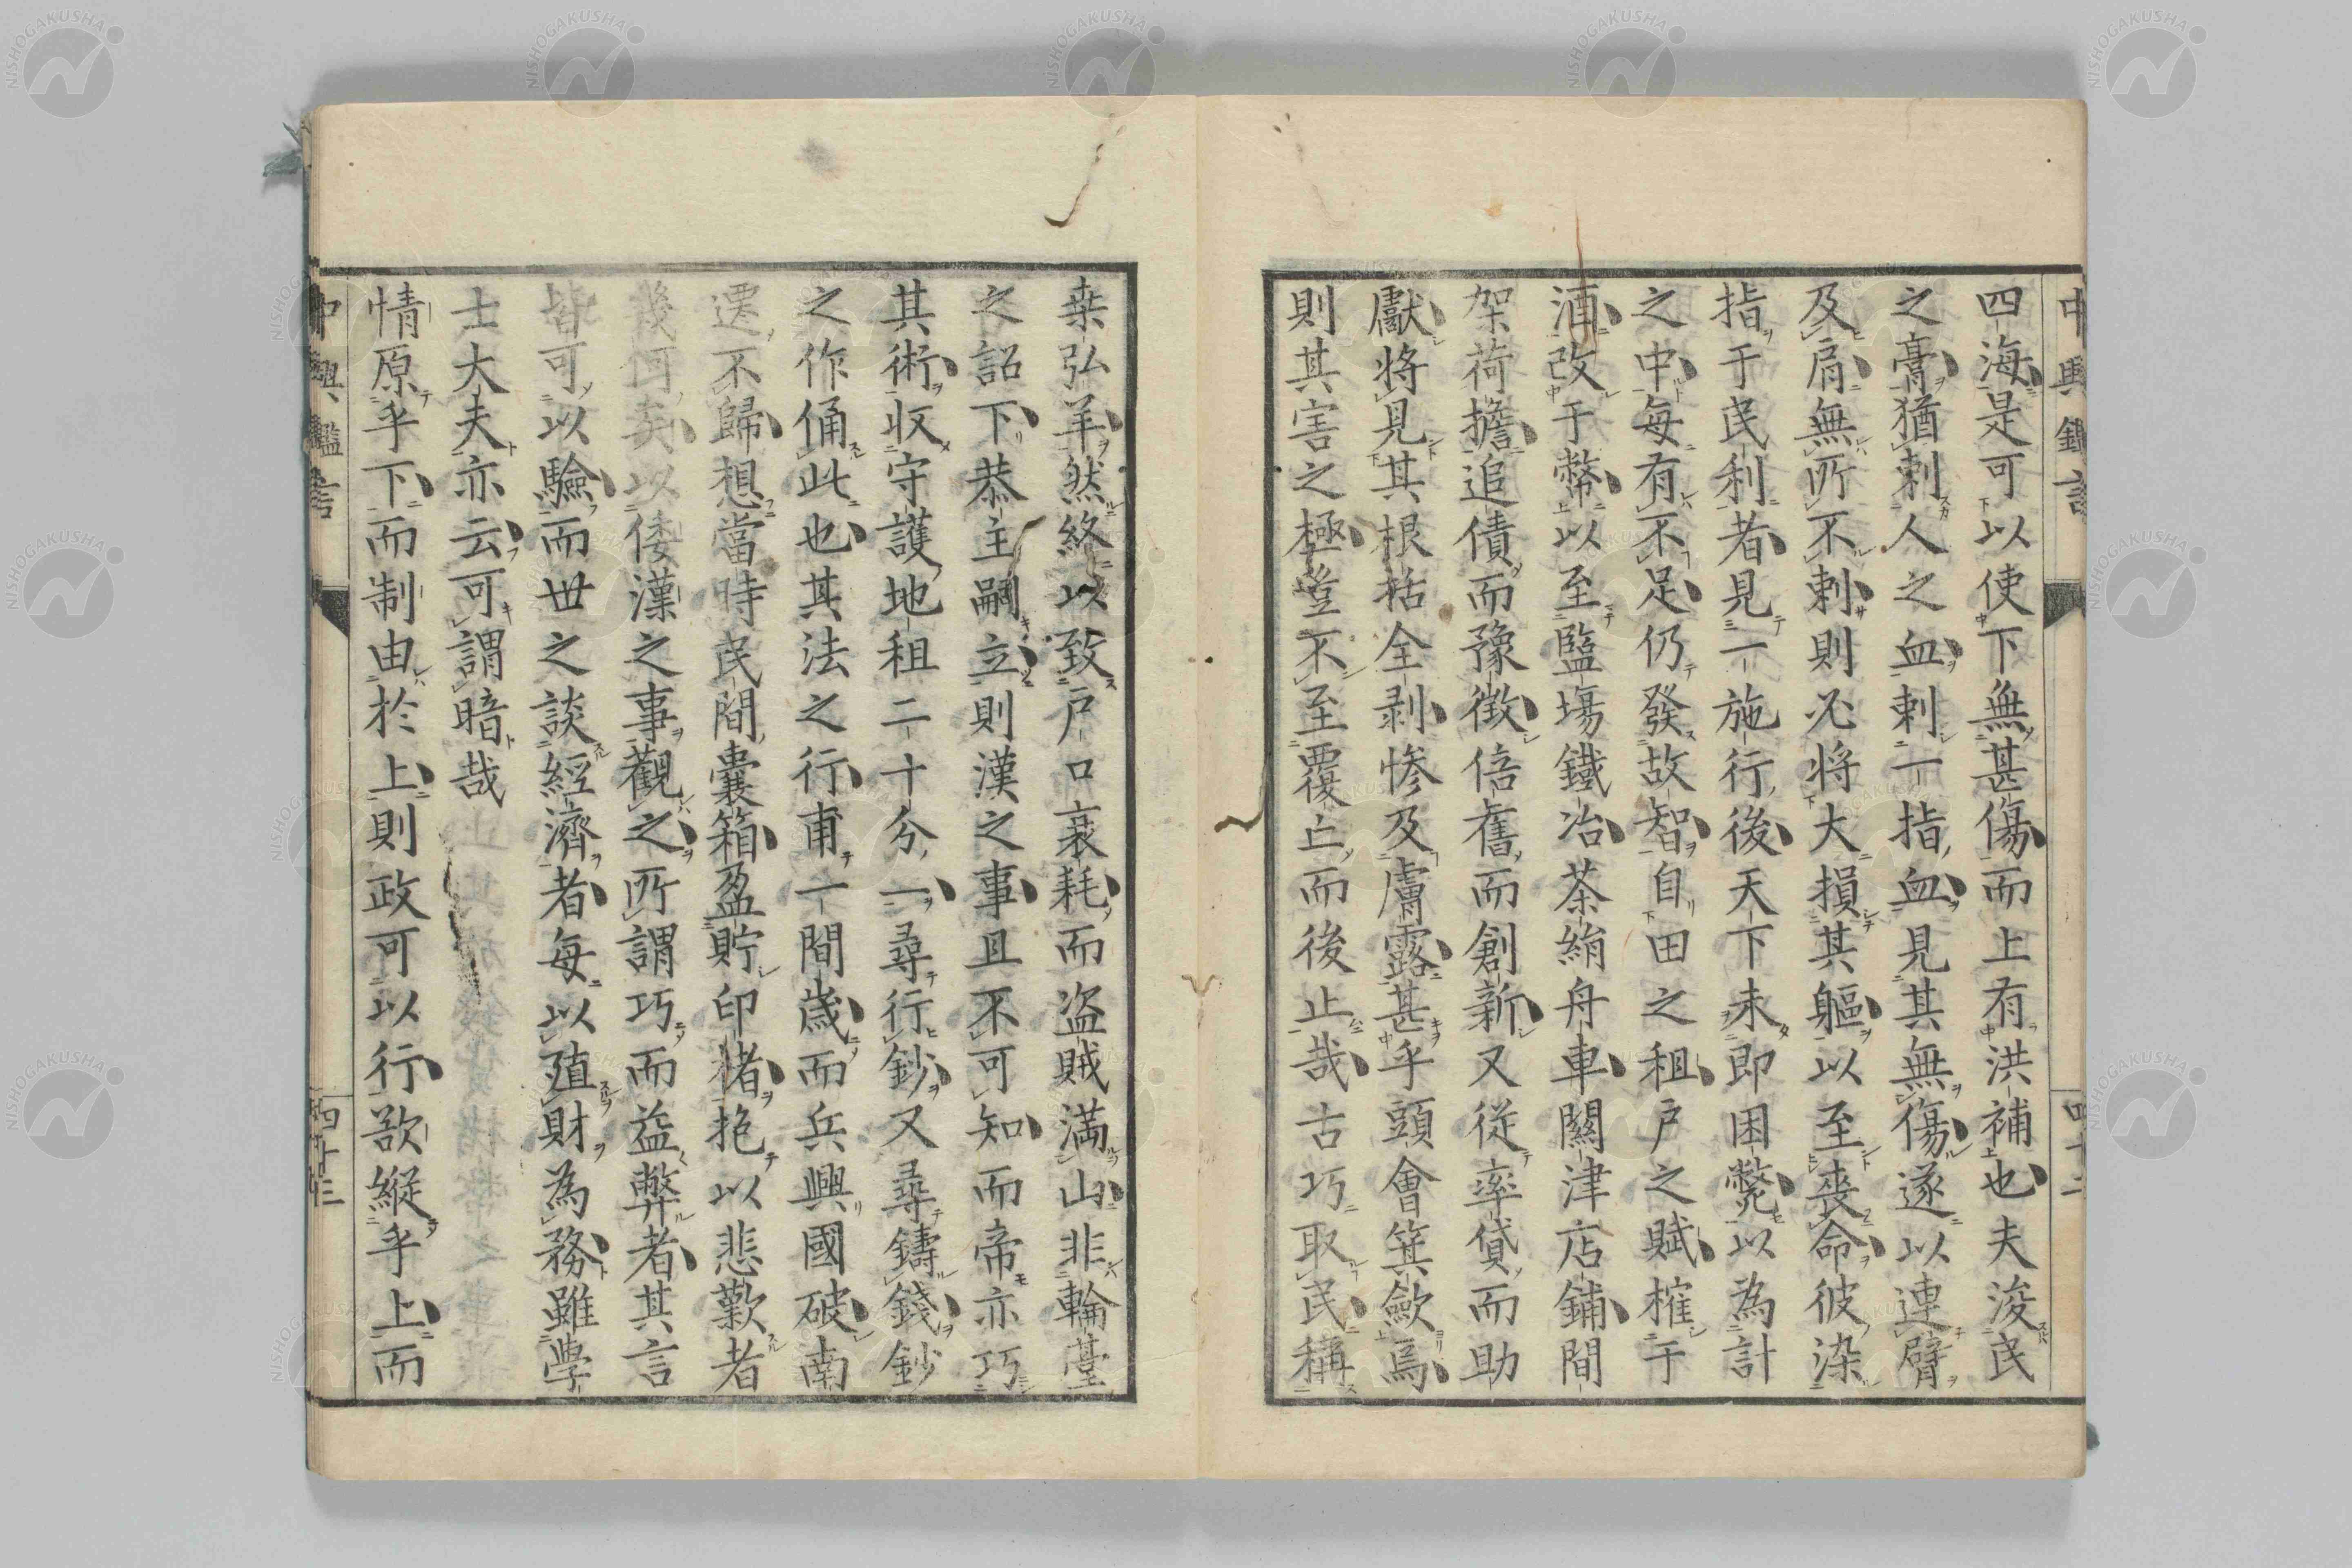 四海是可以使下無甚傷而上有洪補也夫浚民
之膏猶刺人之血刺一指血見其無傷遂以連臂
及肩無所不刺則必將大損其軀以至喪命彼染
指于民利者見一施行後天下未即困斃以為計
之中每有不足仍發故智自田之租戶之賦榷于
酒改于幣以至鹽場鐵冶茶絹舟車關津店鋪間
架荷擔追債而豫徵倍舊而創新又從率貸而助
獻將見其根括全剥慘及膚露甚乎頭會箕歛焉
則其害之極豈不至覆亡而後止哉古巧取民稱
桒弘羊然終以致戶口衰耗而盜賊滿山非輪臺
之詔下恭主嗣立則漢之事且不可知而帝亦巧
其術收守護地租二十分一尋行鈔又尋鑄錢鈔
之作俑此也其法之行甫一間歲而兵興國破南
遷不歸想當時民間囊箱盈貯印楮抱以悲歎者
幾何矣以倭漢之事觀之所謂巧而益弊者其言
皆可以驗而世之談經濟者每以殖財為務雖學
士大夫亦云可謂暗哉
情原乎下而制由於上則政可以行欲縱乎上而
中興鑑言
四十二
中興鑑言
四十三
NISHOGAKUSHA